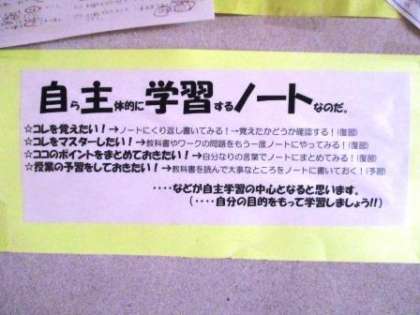 自ら主体的に学習するノートなのだ。
☆コレを覚えたい！→ノートにくり返し書いてみる！→覚えたかどうか確認する！(復習)
☆コレをマスターしたい！→教科書やワークの問題をもう一度ノートにやってみる！(復習)
☆ココのポイントをまとめておきたい！→自分なりの言葉でノートにまとめてみる！(復習)
☆授業の予習をしておきたい！→教科書を読んで大事なところをノートに書いておく！(予習)
････などが自主学習の中心となると思います。
(････自分の目的をもって学習しましょう!!)